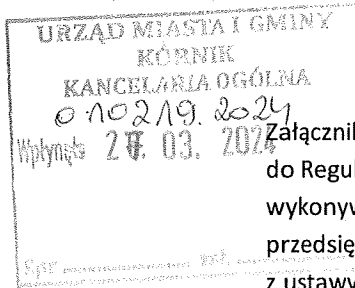 URZĄD MIASTA I GMINY
KÓRNIK
KANCELARIA OGÓLNA
010219.2024
Wpłynęło 27. 03. 2024
Załącznik
do Regul
wykonyw
przedsię
z ustawy